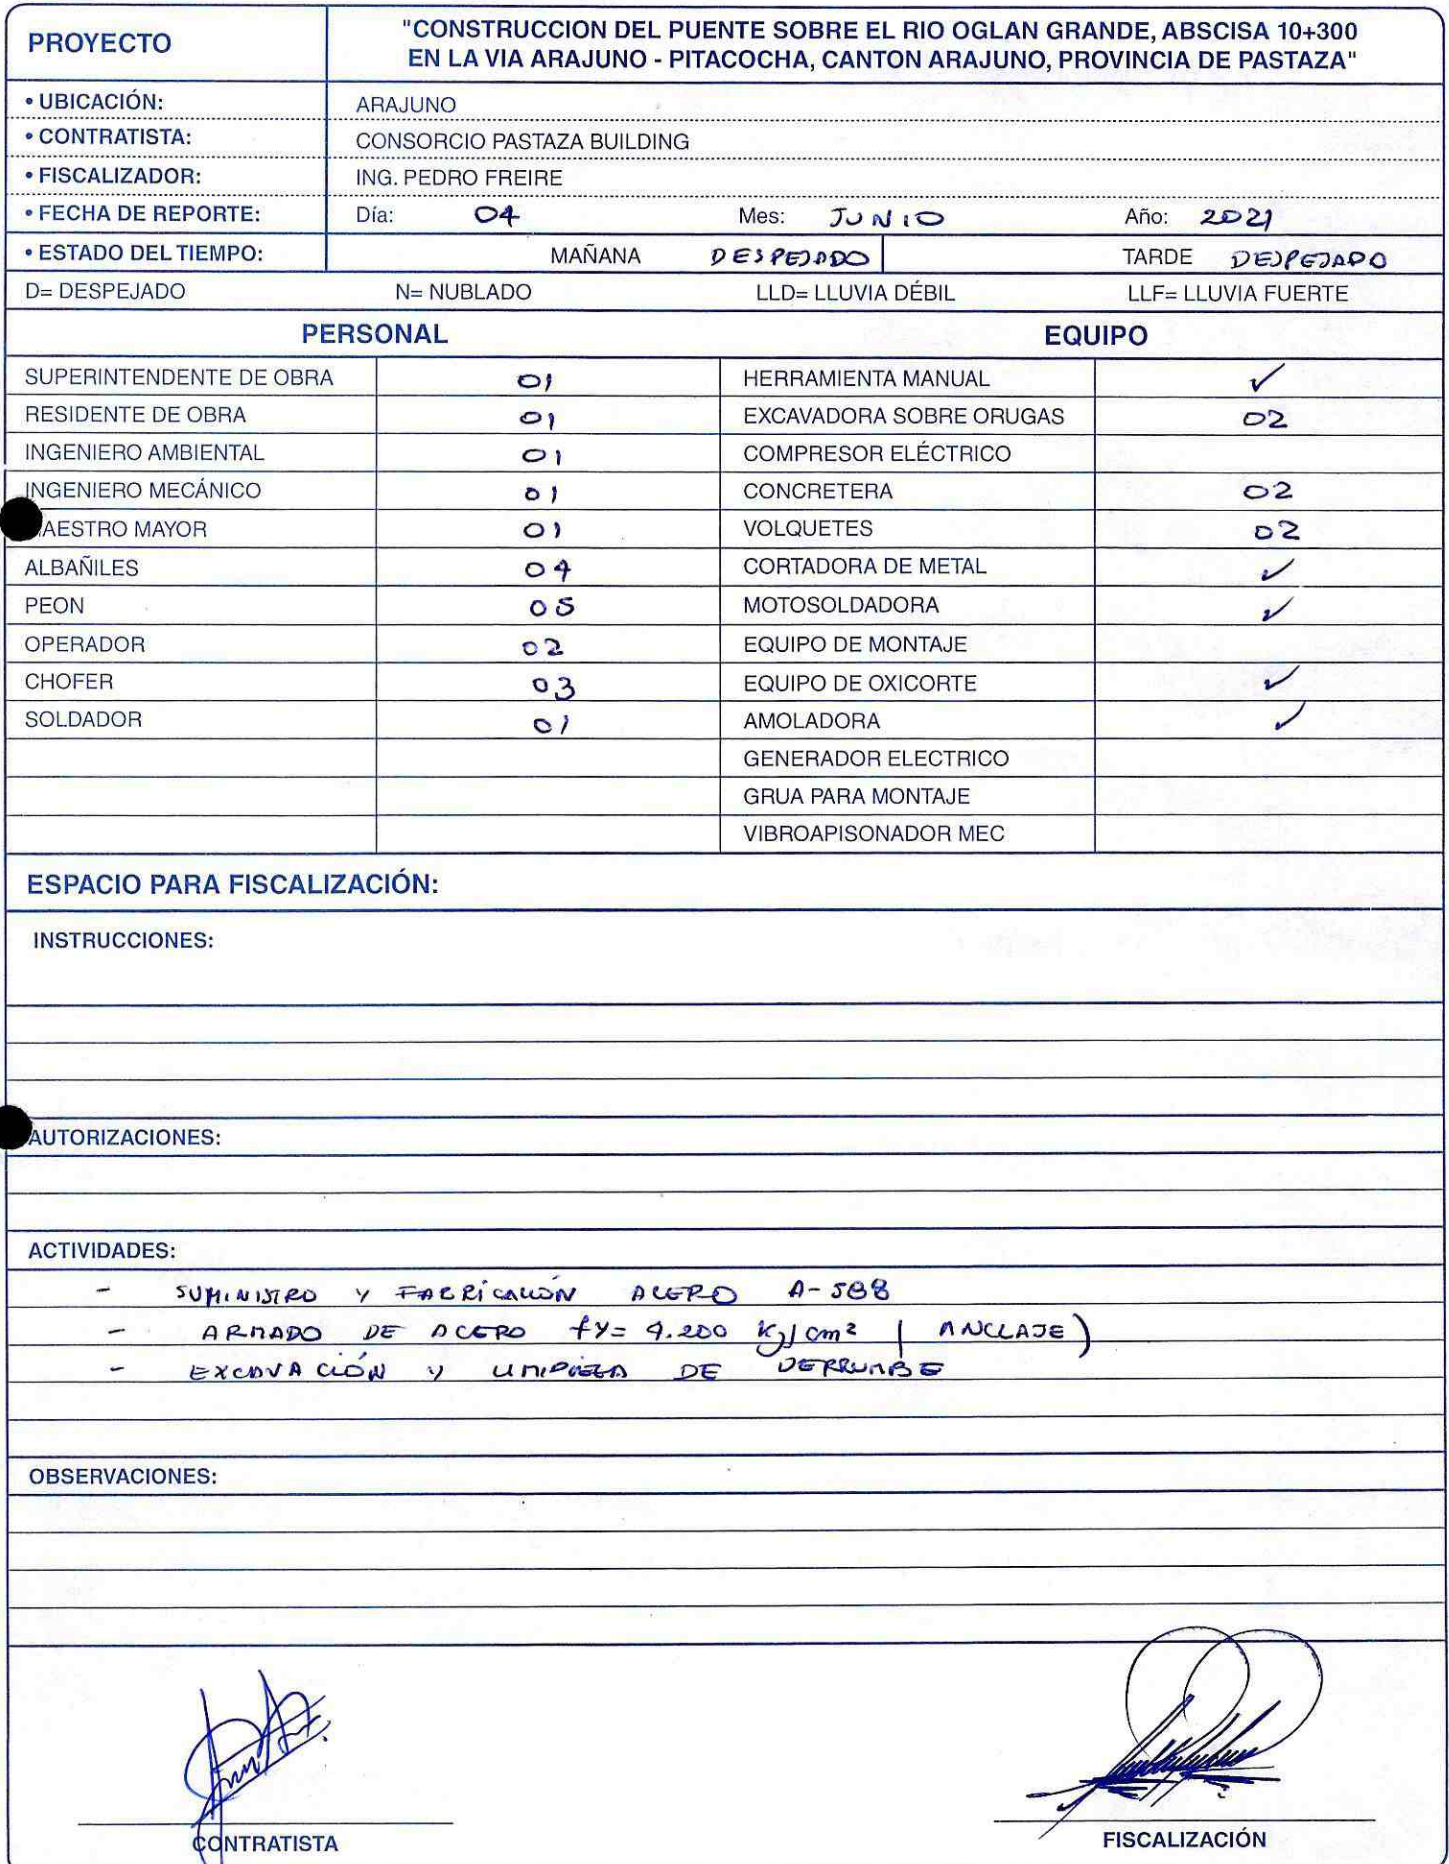 PROYECTO
"CONSTRUCCION DEL PUENTE SOBRE EL RIO OGLAN GRANDE, ABSCISA 10+300
EN LA VIA ARAJUNO - PITACOCHA, CANTON ARAJUNO, PROVINCIA DE PASTAZA"
• UBICACIÓN: ARAJUNO
• CONTRATISTA: CONSORCIO PASTAZA BUILDING
• FISCALIZADOR: ING. PEDRO FREIRE
• FECHA DE REPORTE: Día: 04 Mes: JUNIO Año: 2021
• ESTADO DEL TIEMPO: MAÑANA DESPEJADO TARDE DESPEJADO
D= DESPEJADO N= NUBLADO LLD= LLUVIA DÉBIL LLF= LLUVIA FUERTE
PERSONAL EQUIPO
SUPERINTENDENTE DE OBRA 01 HERRAMIENTA MANUAL ✓
RESIDENTE DE OBRA 01 EXCAVADORA SOBRE ORUGAS 02
INGENIERO AMBIENTAL 01 COMPRESOR ELÉCTRICO
INGENIERO MECÁNICO 01 CONCRETERA 02
AESTRO MAYOR 01 VOLQUETES 02
ALBAÑILES 04 CORTADORA DE METAL ✓
PEON 05 MOTOSOLDADORA ✓
OPERADOR 02 EQUIPO DE MONTAJE
CHOFER 03 EQUIPO DE OXICORTE ✓
SOLDADOR 01 AMOLADORA ✓
GENERADOR ELECTRICO
GRUA PARA MONTAJE
VIBROAPISONADOR MEC
ESPACIO PARA FISCALIZACIÓN:
INSTRUCCIONES:
AUTORIZACIONES:
ACTIVIDADES:
- SUMINISTRO Y FABRICACIÓN ACERO A-588
- ARMADO DE ACERO fY= 4.200 Kg/cm² (ANCLAJE)
- EXCAVACIÓN Y LIMPIEZA DE DERRUMBE
OBSERVACIONES:
CONTRATISTA FISCALIZACIÓN